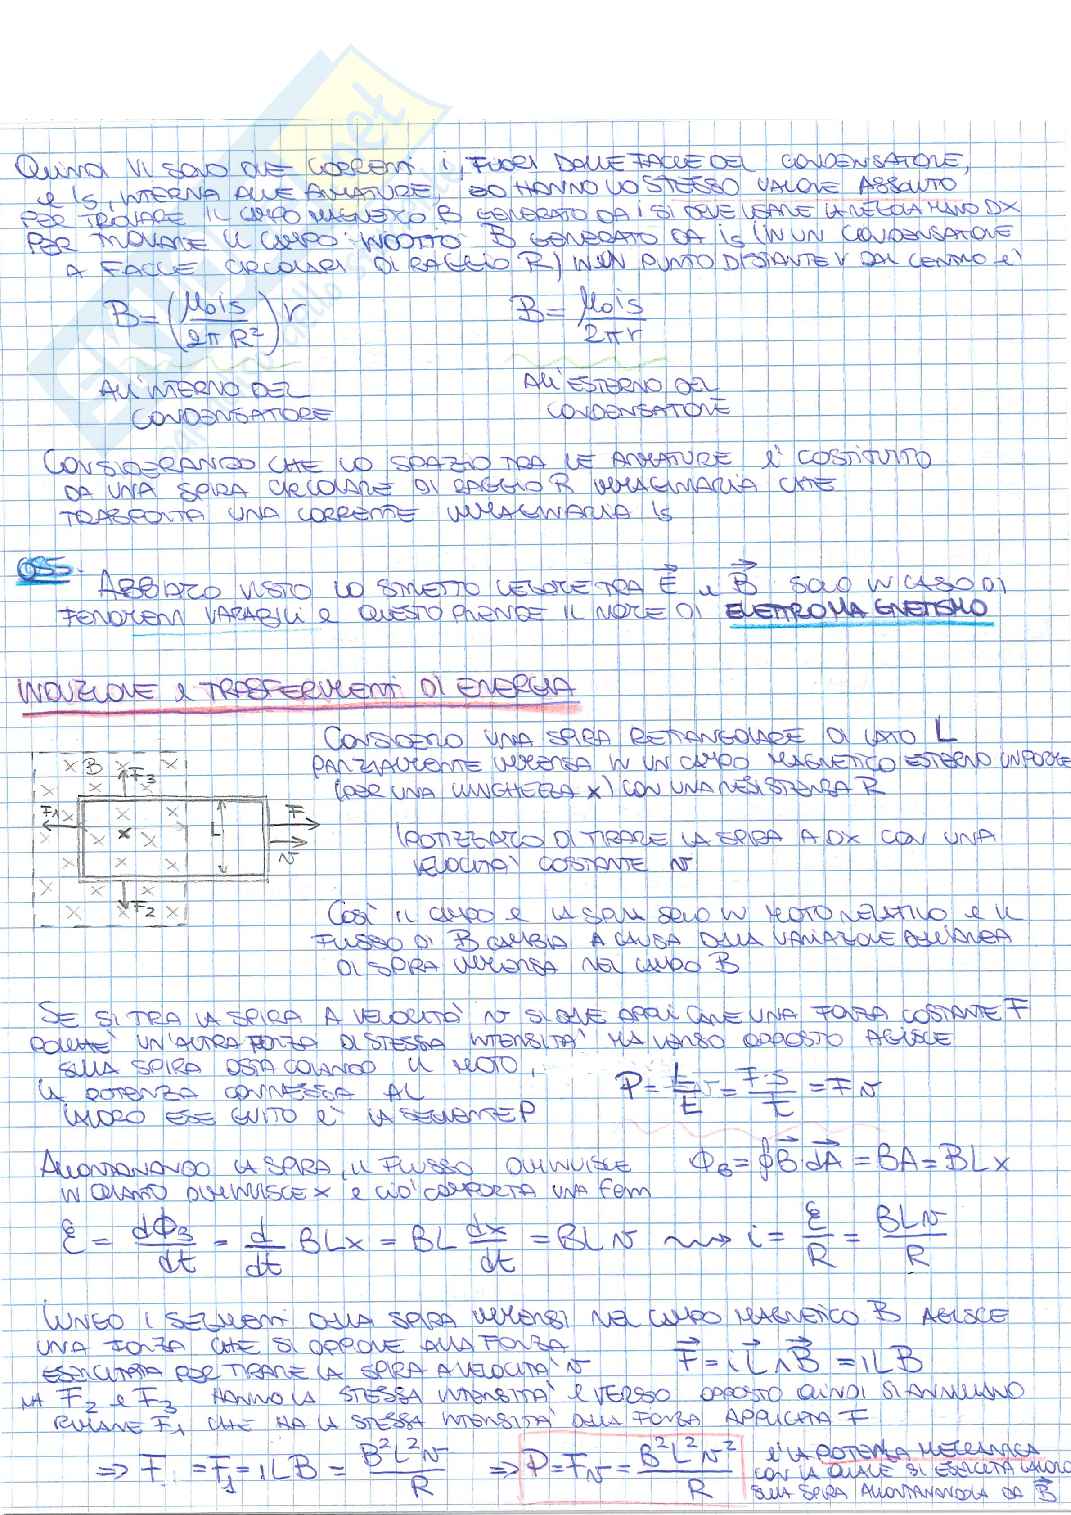 QUINDI VI SONO DUE CORRENTI i, FUORI DALLE FACCE DEL CONDENSATORE,
e is, INTERNA ALLE ARMATURE, HANNO LO STESSO VALORE ASSOLUTO
PER TROVARE IL CAMPO MAGNETICO B GENERATO DA i SI DEVE USARE LA REGOLA MANO DX
PER TROVARE IL CAMPO INDOTTO B GENERATO DA is (IN UN CONDENSATORE
A FACCE CIRCOLARI DI RAGGIO R) IN UN PUNTO DISTANTE r DAL CENTRO è
B = (μ0 is / 2πR²) r B = μ0 is / 2πr
ALL'INTERNO DEL CONDENSATORE ALL'ESTERNO DEL CONDENSATORE
CONSIDERANDO CHE LO SPAZIO TRA LE ARMATURE è COSTITUITO
DA UNA SPIRA CIRCOLARE DI RAGGIO R IMMAGINARIA CHE
TRASPORTA UNA CORRENTE IMMAGINARIA is
OSS.
ABBIAMO VISTO LO STRETTO LEGAME TRA E e B SOLO IN CASO DI
FENOMENI VARIABILI e QUESTO PRENDE IL NOME DI ELETTROMAGNETISMO
INDUZIONE e TRASFERIMENTI DI ENERGIA
B F3
F1 L F
v
F2
CONSIDERO UNA SPIRA RETTANGOLARE DI LATO L
PARZIALMENTE IMMERSA IN UN CAMPO MAGNETICO ESTERNO UNIFORME
(PER UNA LUNGHEZZA x) CON UNA RESISTENZA R
IPOTIZZIAMO DI TIRARE LA SPIRA A DX CON UNA
VELOCITA' COSTANTE v
COSì IL CAMPO e LA SPIRA SONO IN MOTO RELATIVO e IL
FLUSSO DI B CAMBIA A CAUSA DELLA VARIAZIONE DELL'AREA
DI SPIRA IMMERSA NEL CAMPO B
SE SI TIRA LA SPIRA A VELOCITA' v SI DEVE APPLICARE UNA FORZA COSTANTE F
POICHE' UN'ALTRA FORZA DI STESSA INTENSITA' MA VERSO OPPOSTO AGISCE
SULLA SPIRA OSTACOLANDO IL MOTO,
LA POTENZA CONNESSA AL
LAVORO ESEGUITO è LA SEGUENTE P
P = L/t = F·S/t = Fv
ALLONTANANDO LA SPIRA, IL FLUSSO DIMINUISCE
IN QUANTO DIMINUISCE x e CIò COMPORTA UNA fem
ΦB = ∮B·dA = BA = BLx
ℰ = dΦB/dt = d/dt BLx = BL dx/dt = BLv ⟿ i = ℰ/R = BLv/R
LUNGO I SEGMENTI DELLA SPIRA IMMERSI NEL CAMPO MAGNETICO B AGISCE
UNA FORZA CHE SI OPPONE ALLA FORZA
ESERCITATA PER TIRARE LA SPIRA A VELOCITA' v
F = iL ∧ B = iLB
F2 e F3 HANNO LA STESSA INTENSITA' e VERSO OPPOSTO QUINDI SI ANNULLANO
RIMANE F1 CHE HA LA STESSA INTENSITA' DELLA FORZA APPLICATA F
⇒ F = F1 = iLB = B²L²v/R ⇒ P = Fv = B²L²v²/R
è LA POTENZA MECCANICA
CON LA QUALE SI ESERCITA LAVORO
SULLA SPIRA ALLONTANANDOLA DA B